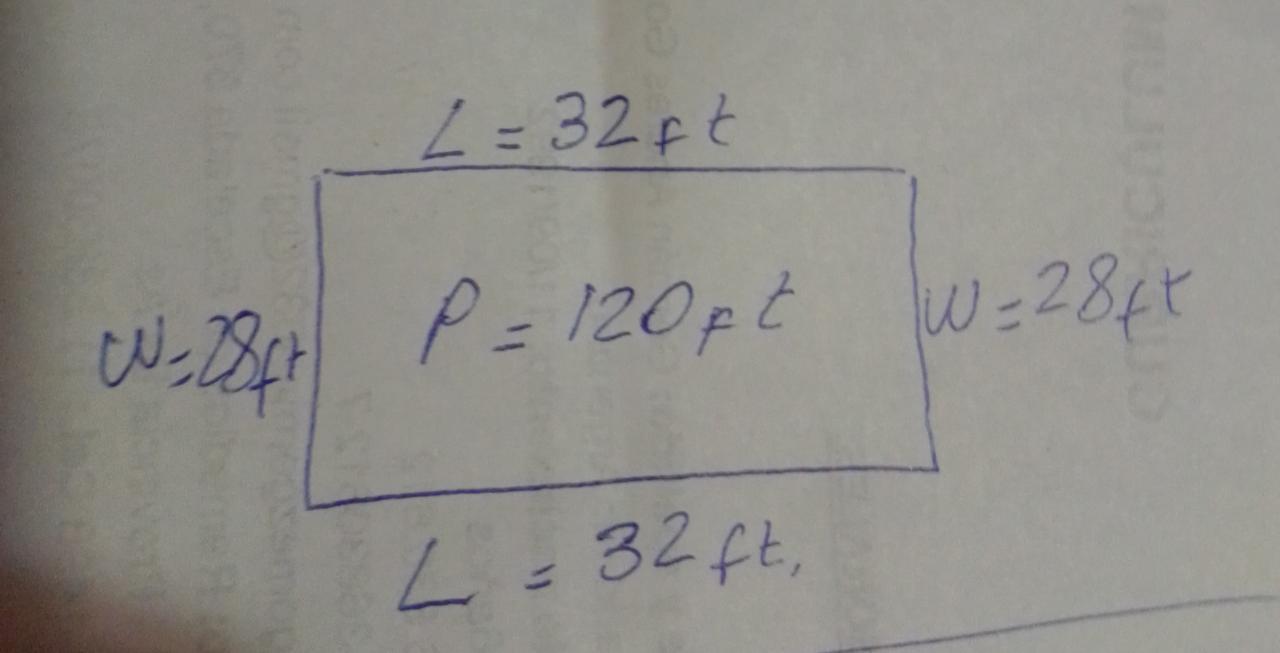 L = 32 ft
W = 28 ft
P = 120 ft
W = 28 ft
L = 32 ft.